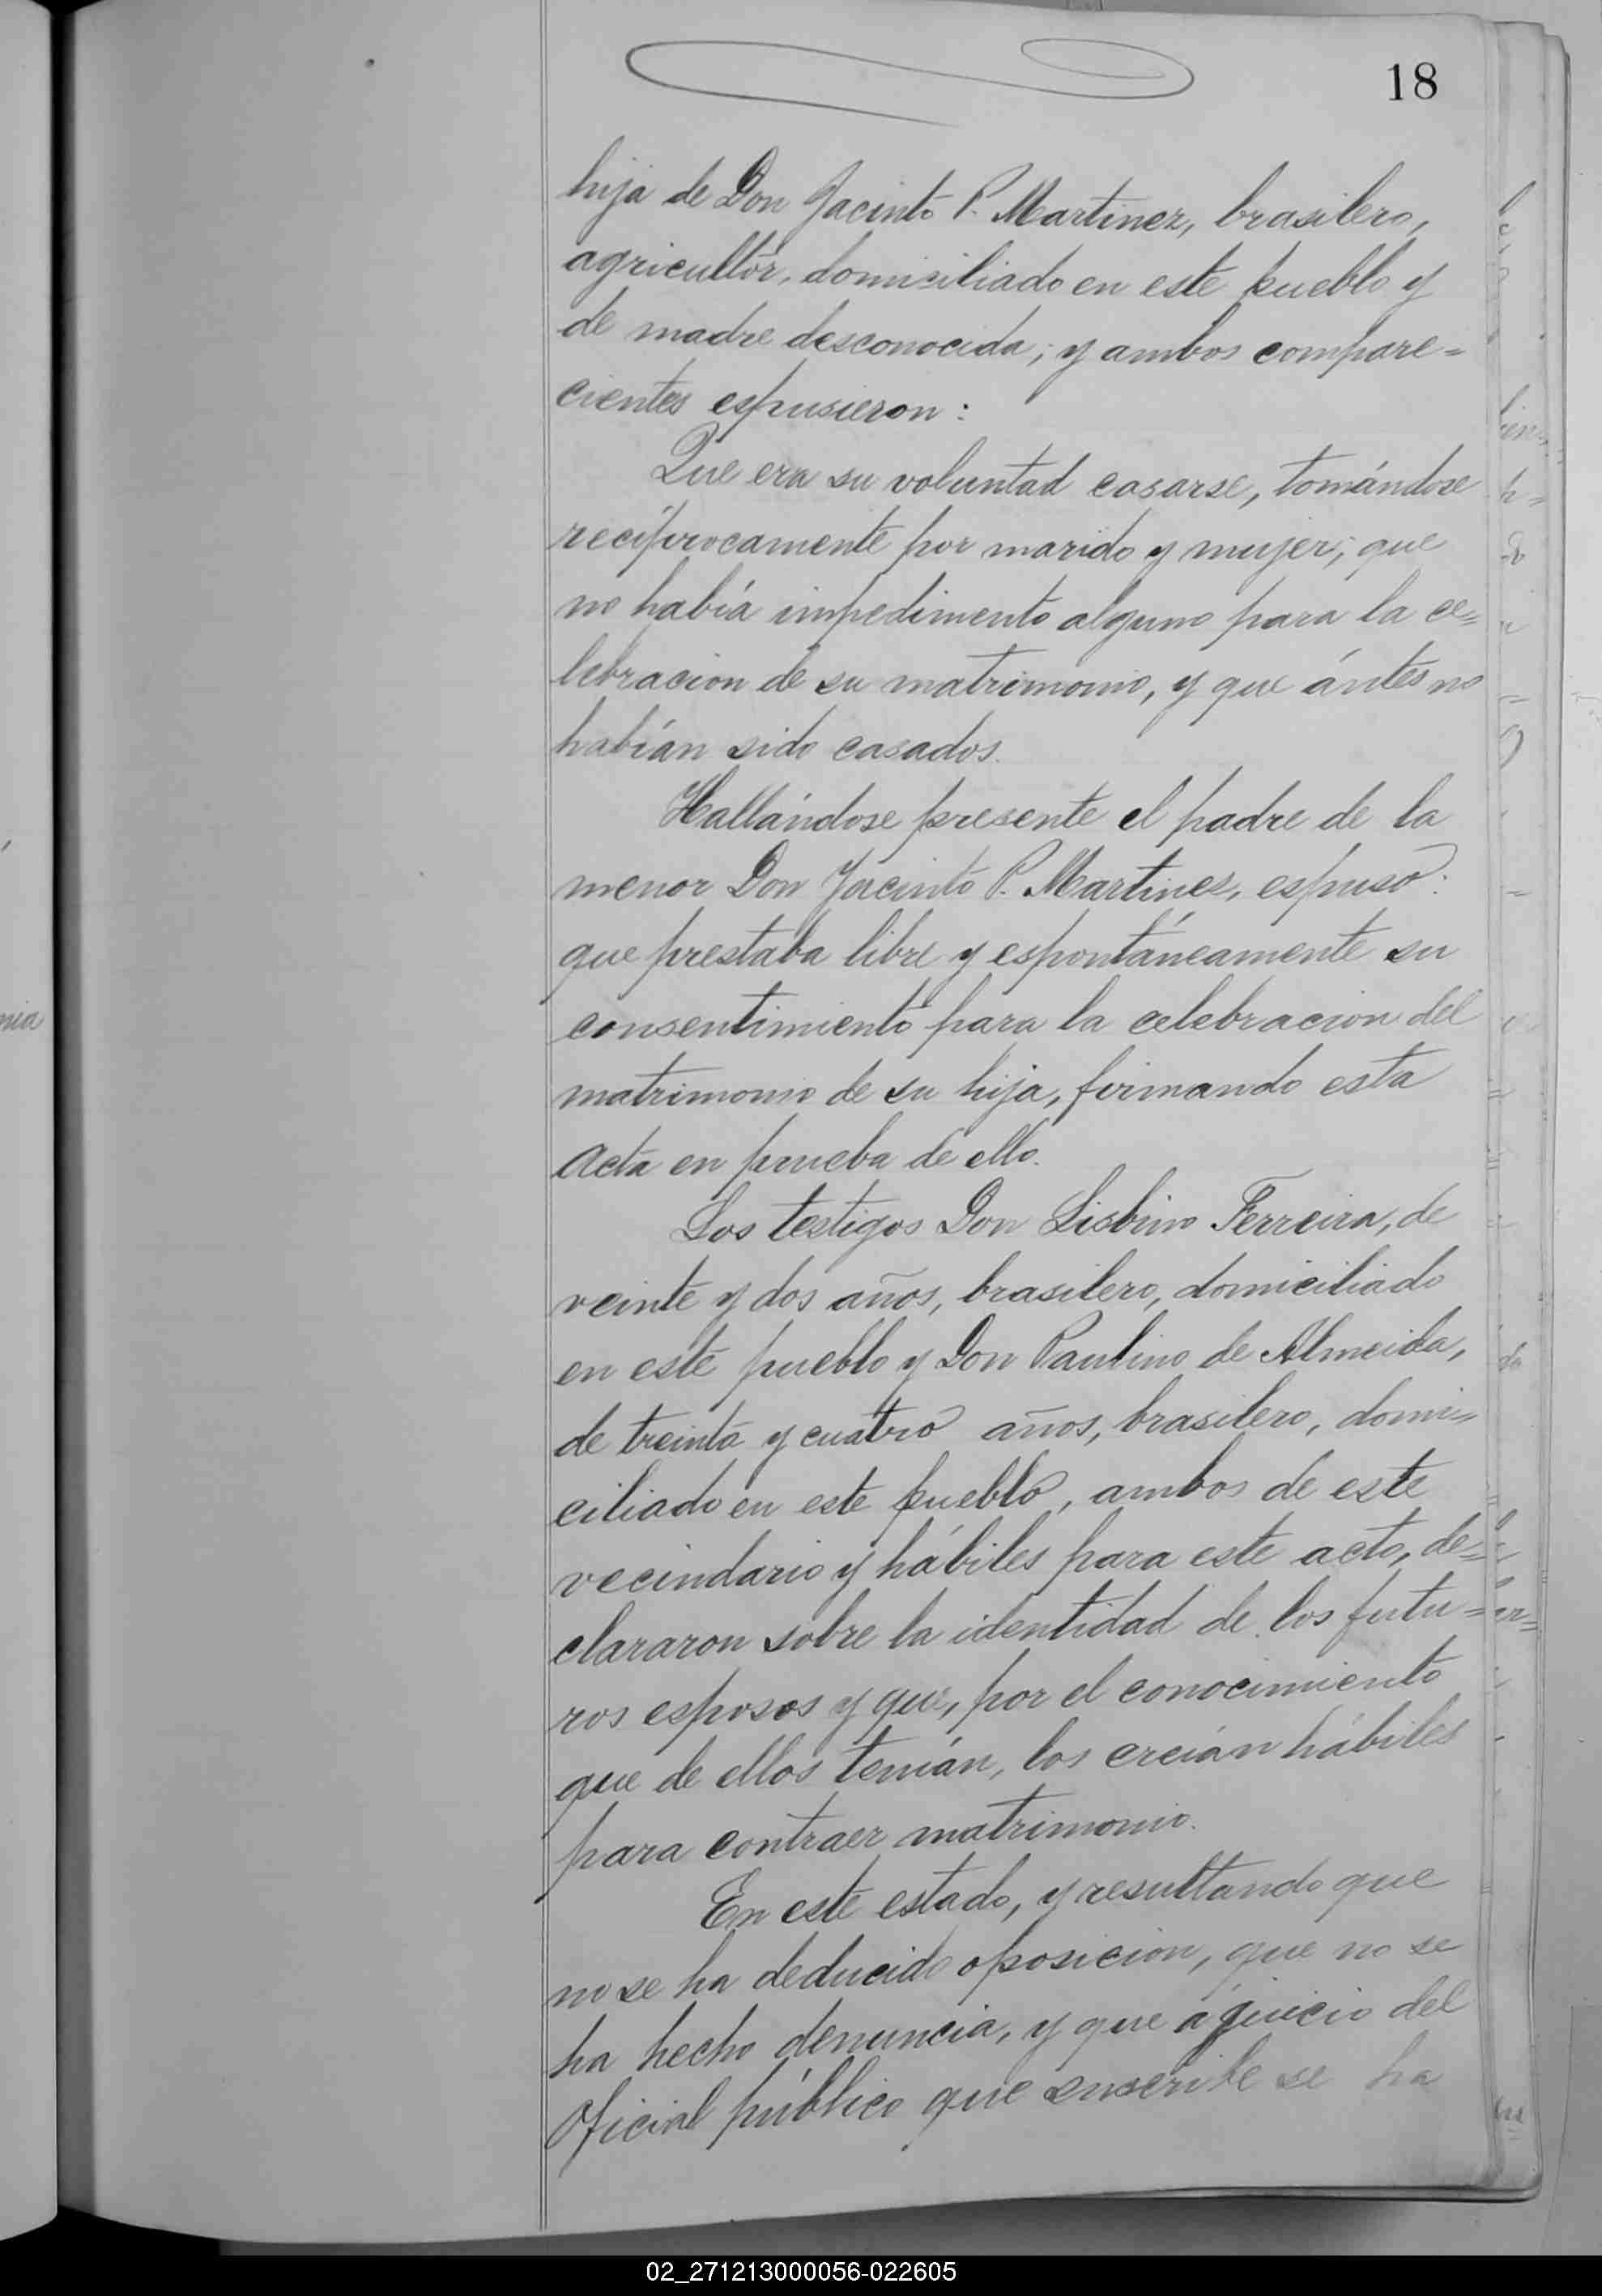 18
hija de Don Jacinto P. Martinez, brasilero,
agricultor, domiciliado en este pueblo y
de madre desconocida; y ambos compare=
cientes espusieron:
Que era su voluntad casarse, tomándose
recíprocamente por marido y mujer; que
no había impedimento alguno para la ce=
lebracion de su matrimonio, y que ántes no
habían sido casados.
Hallándose presente el padre de la
menor Don Jacinto P. Martinez, espuso:
que prestaba libre y espontáneamente su
consentimiento para la celebracion del
matrimonio de su hija, firmando esta
acta en prueba de ello.
Los testigos Don Lisbino Ferreira, de
veinte y dos años, brasilero, domiciliado
en este pueblo y Don Paulino de Almeida,
de treinta y cuatro años, brasilero, domi=
ciliado en este pueblo, ambos de este
vecindario y hábiles para este acto, de=
clararon sobre la identidad de los futu=
ros esposos y que, por el conocimiento
que de ellos tenían, los creían hábiles
para contraer matrimonio.
En este estado, y resultando que
no se ha deducido oposicion, que no se
ha hecho denuncia, y que á juicio del
Oficial público que suscribe se ha
02_271213000056-022605